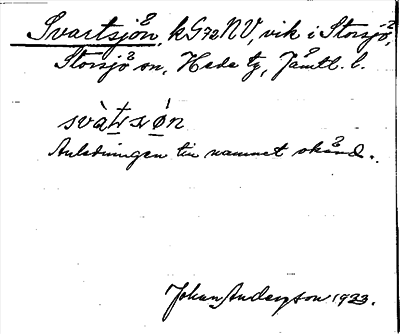 Svartsjön, k G72NV, vik i Storsjö,
Storsjö sn, Hede tg, Jämtl. l.
svàtsøn
Anledningen till namnet okänd.
Johan Anderzson 1933.